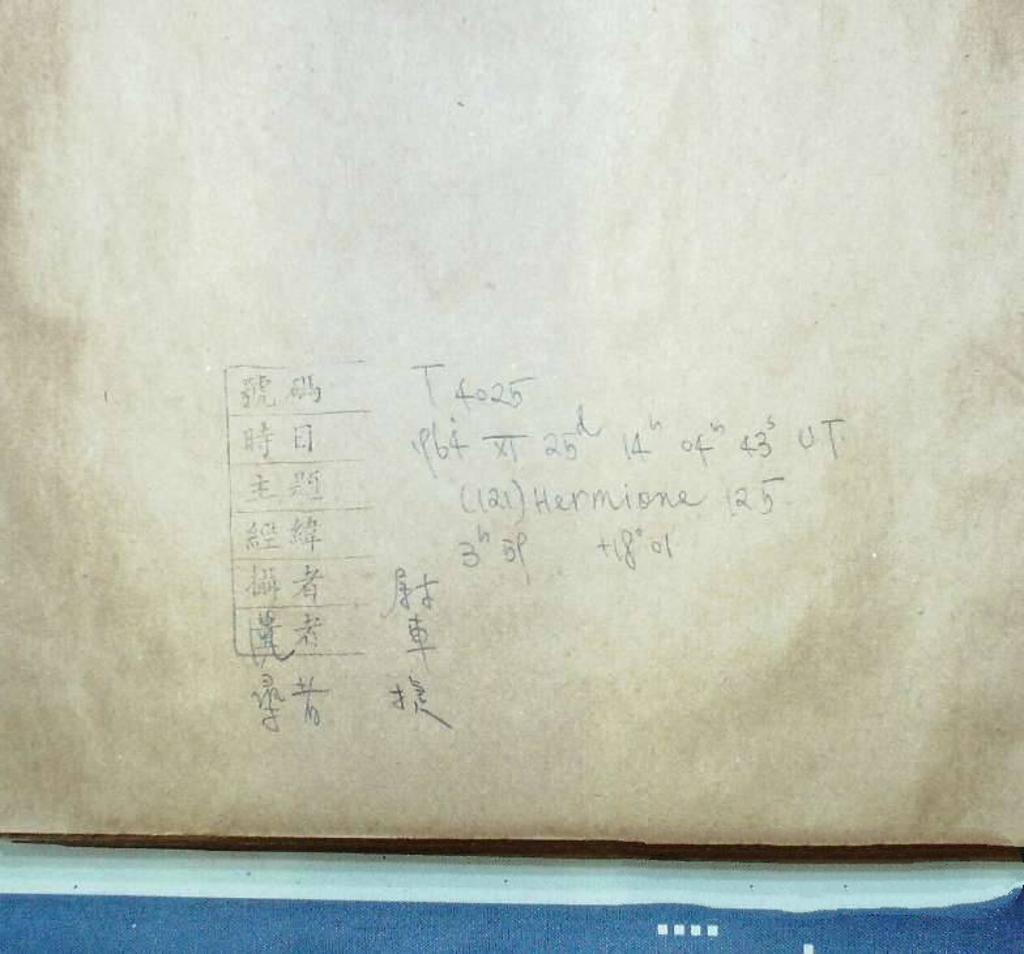 號碼 T 4025
時日 1964 XI 25d 14h 04m 43s UT
主題 (121) Hermione 125
經緯 3h 59 +18° 01
攝者
者 車
者